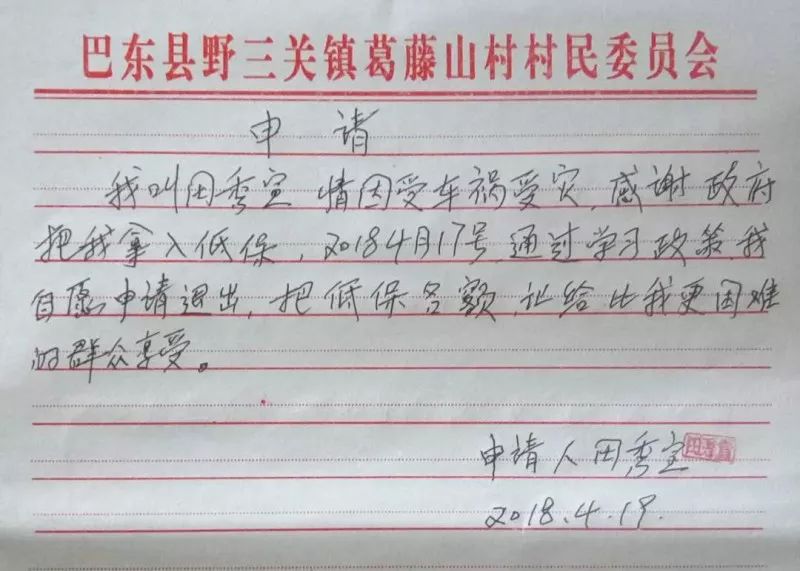 巴东县野三关镇葛藤山村村民委员会
申 请
我叫田秀宣 情因受车祸受灾,感谢政府
把我拿入低保,2018 4月17号,通过学习政策,我
自愿申请退出,把低保名额,让给比我更困难
的群众享受。
申请人田秀宣
2018.4.19.